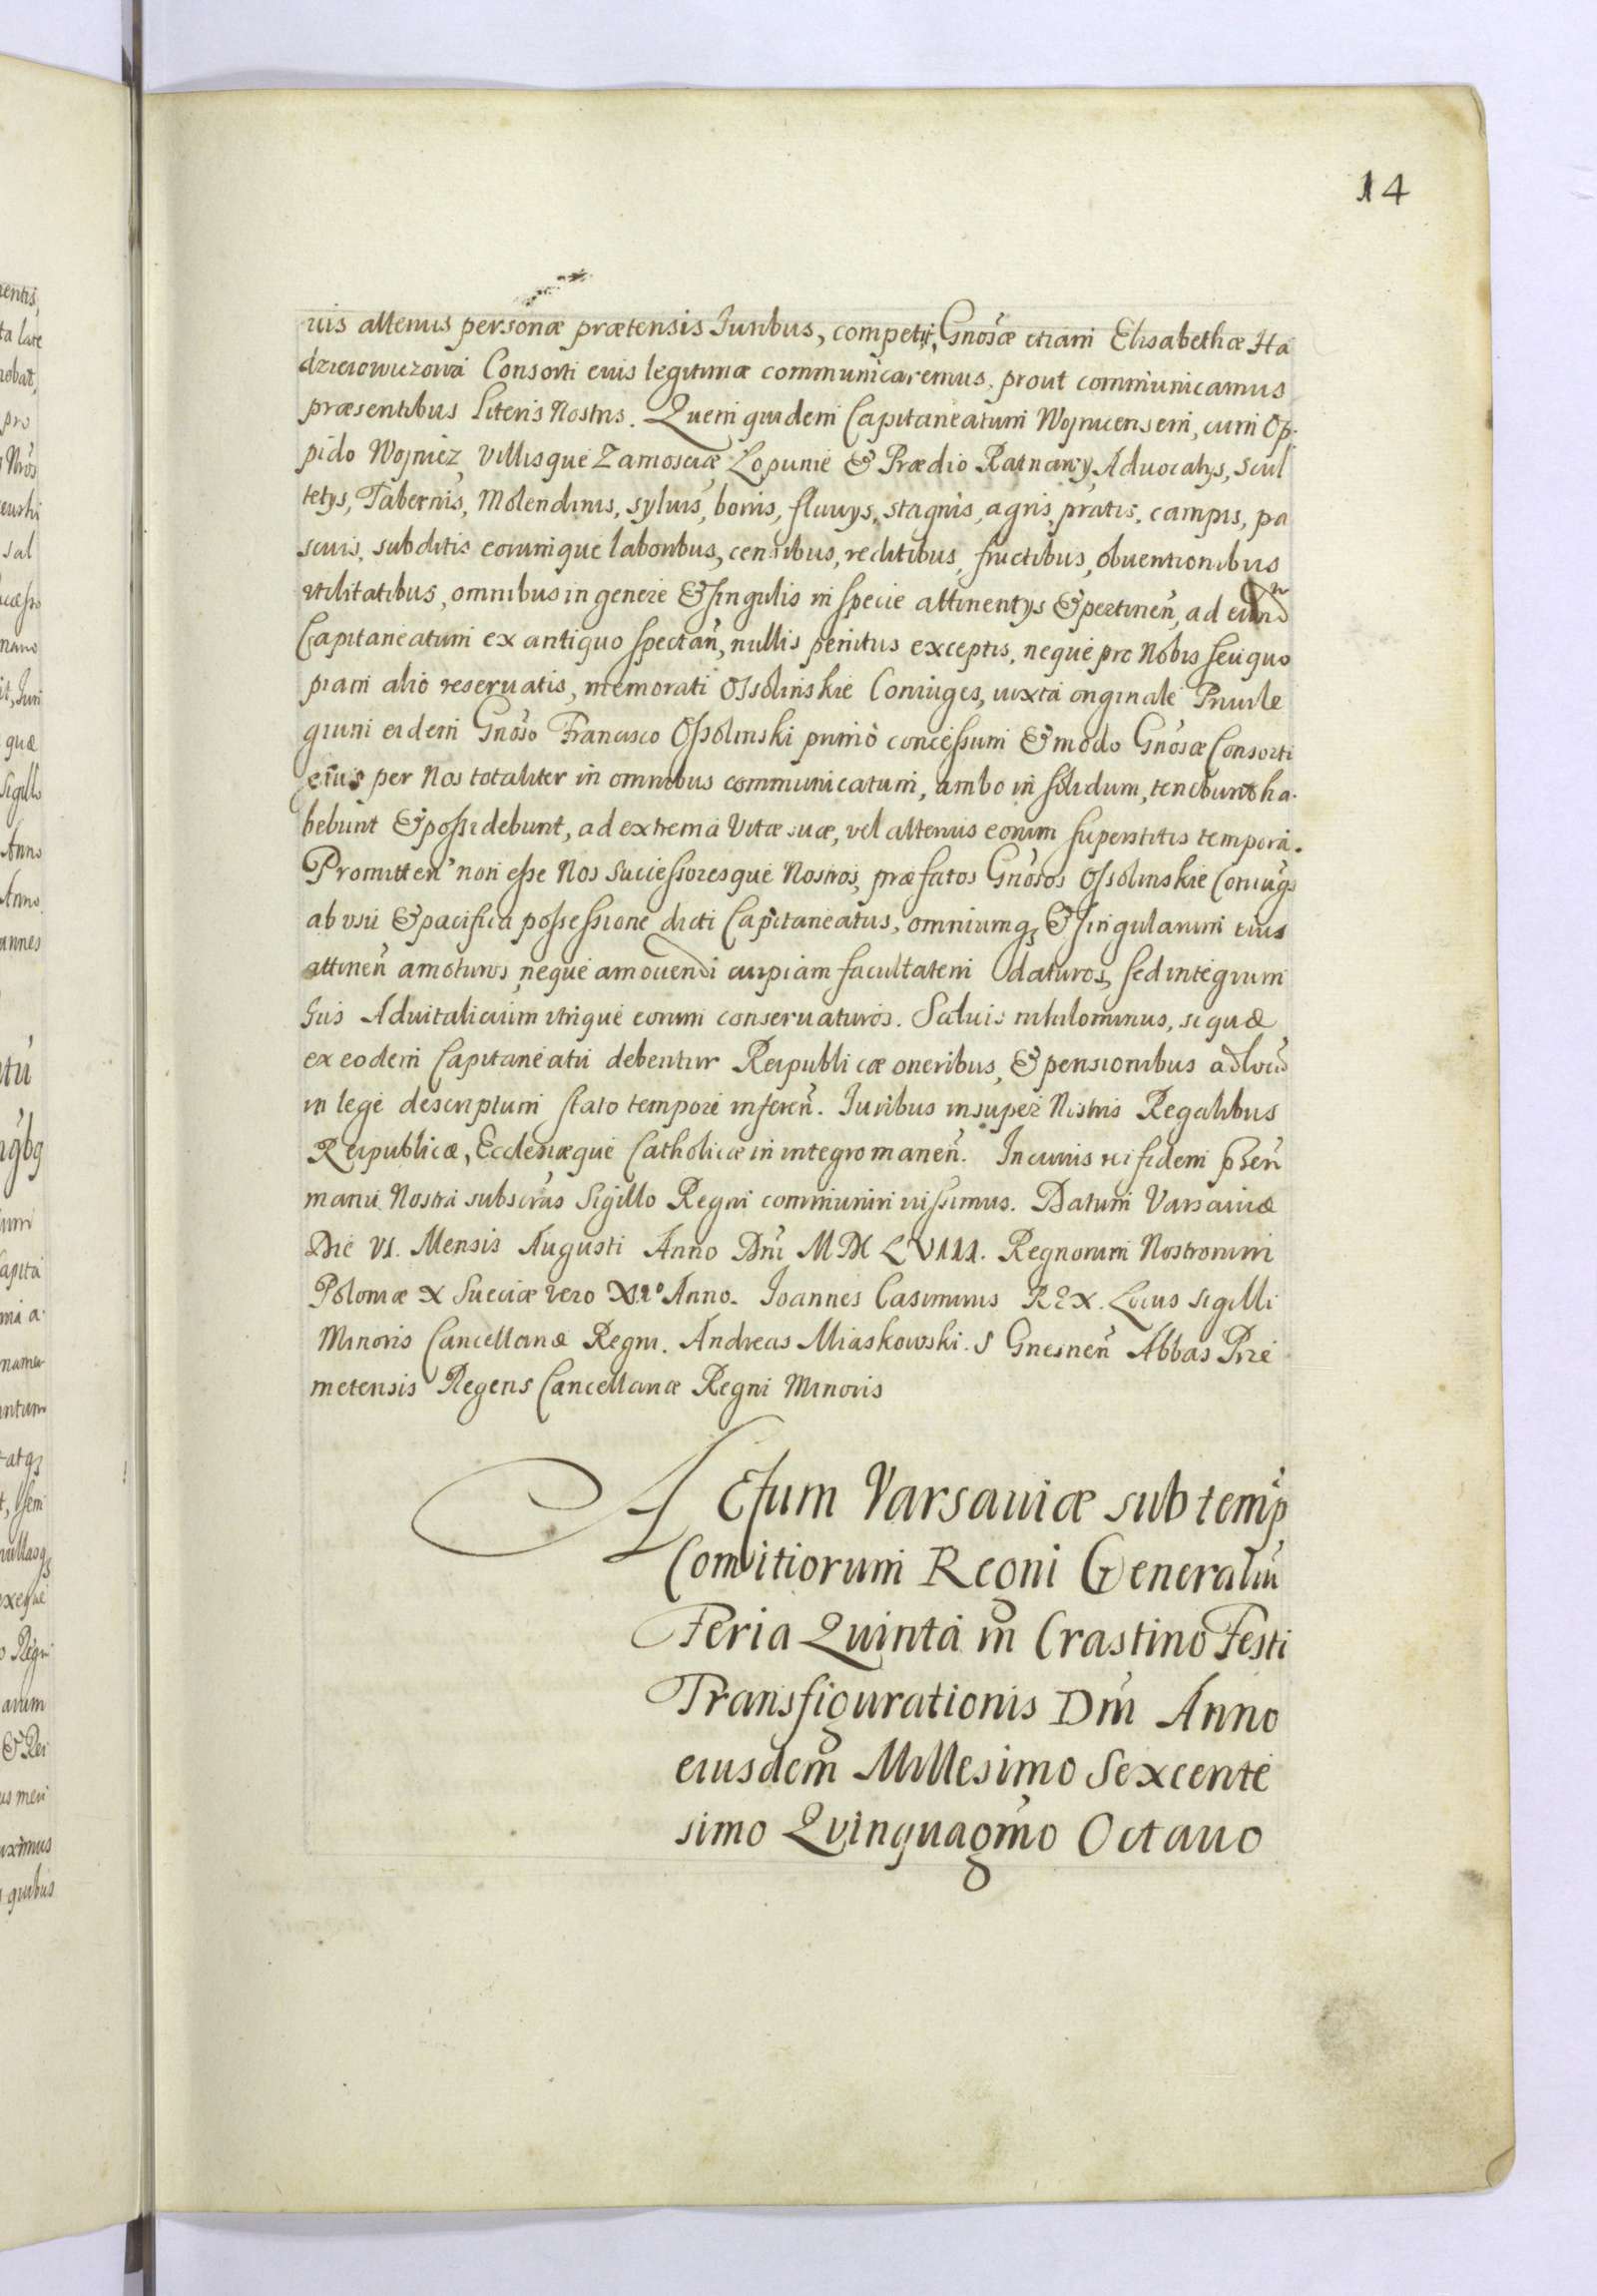 14
uis alterius personæ prætensis Iuribus, competij, Gnosæ etiam Elisabethæ Ha
dzieiowiczowa Consorti eius legitimæ communicaremus. prout communicamus
præsentibus Literis Nostris. Quem quidem Capitaneatum Wojnicensem, cum Op-
pido Wojnicz, Villisque Zamosciæ Lopunie & Prædio Ratnawy, Aduocatys, Scul
tetys, Tabernis, Molendinis, syluis, borris, fluuys, stagnis, agris, pratis, campis, pa
scuis, subditis eorumque laboribus, censibus, reditibus, fructibus, obuentionibus
vtilitatibus, omnibus in genere & singulis in specie attinentys & pertinen̄, ad eund
Capitaneatum ex antiquo spectan̄, nullis penitus exceptis, neque pro Nobis seu quo
piam alio reseruatis, memorati Ossolinskie Coniuges, iuxta originale Priuile
gium eidem Gnoso Francisco Ossolinski primo concessum & modo Gnosæ Consorti
eius per Nos totaliter in omnibus communicatum, ambo in solidum, tenebunt ha-
bebunt & possidebunt, ad extrema Vitæ suæ, vel alterius eorum superstitis tempora.
Promitten̄ non esse Nos Successoresque Nostros, præfatos Gnosos Ossolinskie Coniug
ab vsu & pacifica possessione dicti Capitaneatus, omniumq & singularum eius
attinen̄ amoturos, neque amouendi cuipiam facultatem daturos, sed integrum
Ius Aduitalicium vtrique eorum conseruaturos. Saluis nihilominus, si quæ
ex eodem Capitaneatu debentur Reipublicæ oneribus, & pensionibus ad locū
in lege descriptum stato tempore inferen̄. Iuribus insuper Nostris Regalibus
Reipublicæ, Ecclesiæque Catholicæ in integro manen̄. In cuius rei fidem pñen
manu Nostra subscrās Sigillo Regni communiri iussimus. Datum Varsauiæ
Die VI. Mensis Augusti Anno Dnī MDCLVIII. Regnorum Nostrorum
Poloniæ & Sueciæ vero Xmo Anno. Ioannes Casimirus REX. Locus sigilli
Minoris Cancellariæ Regni. Andreas Miaskowski. S Gnesnen̄ Abbas Prze
metensis Regens Cancellariæ Regni Minoris
ACtum Varsauiæ sub temp
Comitiorum Regni Generaliū
Feria Quinta in Crastino Festi
Transfigurationis Dnī Anno
eiusdem Millesimo Sexcente
simo Quinquagmo Octauo